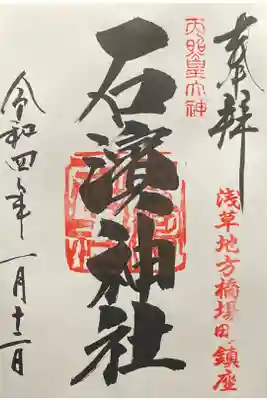 奉拝
天照皇大神
浅草地方橋場町鎮座
石濱神社
令和四年一月十二日